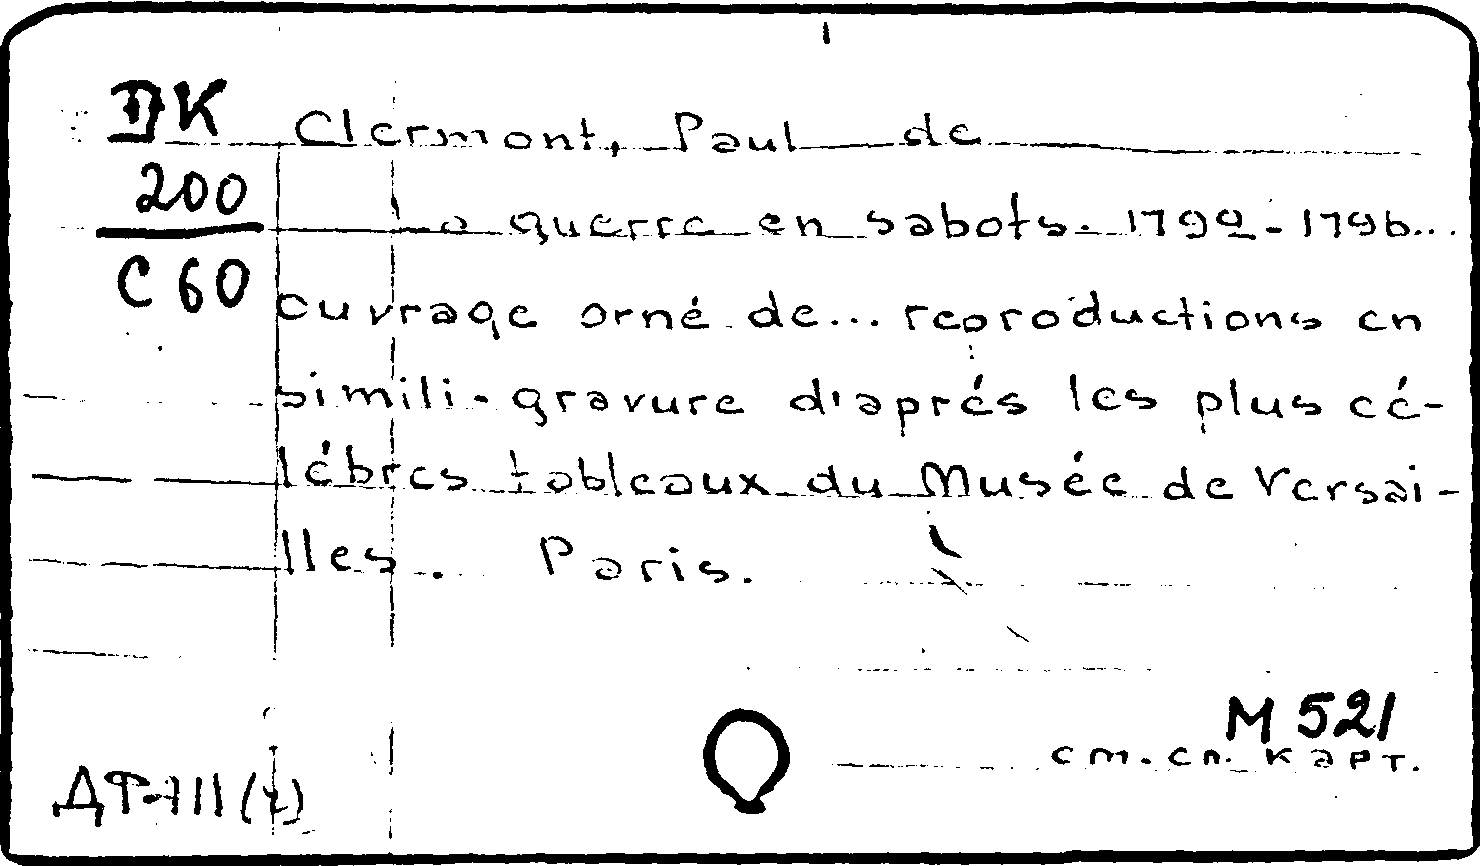 DK
200
C 60
Clermont, Paul de
La guerre en sabots. 1792-1796...
ouvrage orné de... reproductions en
simili-gravure d'aprés les plus cé-
lébres tableaux du Musée de Versai-
lles. Paris.
M 521
см. сп. карт.